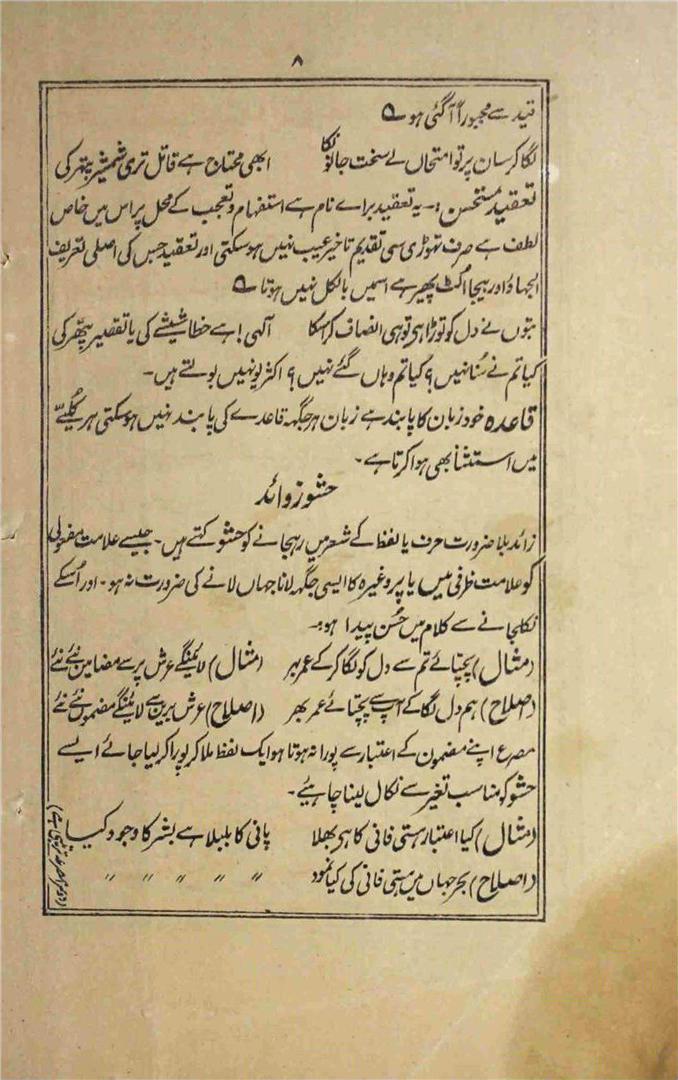 ۸
قید سے مجبوراً آگئی ہو ؎
لگا کر سان پر تو امتحاں لے سخت جانونکا ابھی محتاج ہے قاتل تری شمشیر پتھر کی
تعقید مستحسن :۔ یہ تعقید براے نام ہے استفہام و تعجب کے محل پر اس میں خاص
لطف ہے صرف تھوڑی سی تقدیم تاخیر عیب نہیں ہو سکتی اور تعقید جس کی اصلی تعریف
الجھاؤ اور بیجا الٹ پھیر ہے اسمیں بالکل نہیں ہوتا ؎
بتوں نے دل کو توڑا ہی تو ہی انصاف کر اسکا آلہی! ہے خطا شیشے کی یا تقصیر پتھر کی
کیا تم نے سُنا نہیں؟ کیا تم وہاں گئے نہیں؟ اکثر یونہیں بولتے ہیں۔
قاعدہ خود زبان کا پابند ہے زبان ہر جگہ قاعدے کی پابند نہیں ہو سکتی ہر کُلّیے
میں استثنا بھی ہوا کرتا ہے۔
حشو زوائد
زائد بلا ضرورت حرف یا لفظ کے شعر میں رہجانے کو حشو کہتے ہیں۔ جیسے علامت مفعولی
کو علامت ظرفی میں یا پر وغیرہ کا ایسی جگہ لانا جہاں لانے کی ضرورت نہ ہو۔ اور اُسکے
نکلجانے سے کلام میں حُسن پیدا ہو۔
(مثال) پچتائے تم سے دل کو لگا کر کے عمر بھر (مثال) لائینگے عرش پر سے مضامیں نئے نئے
(اصلاح) ہم دل لگا کے آپ سے پچتائے عمر بھر (اصلاح) عرش بریں سے لائینگے مضموں نئے نئے
مصرع اپنے مضمون کے اعتبار سے پورا نہ ہوتا ہو ایک لفظ ملا کر پورا کر لیا جائے ایسے
حشو کو مناسب تغیر سے نکال لینا چاہئیے۔
(مثال) کیا اعتبار ہستی فانی کا ہی بھلا پانی کا بلبلا ہے بشر کا وجود کیا
(اصلاح) بحر جہاں میں ہستی فانی کی کیا نمود 〃 〃 〃 〃 〃